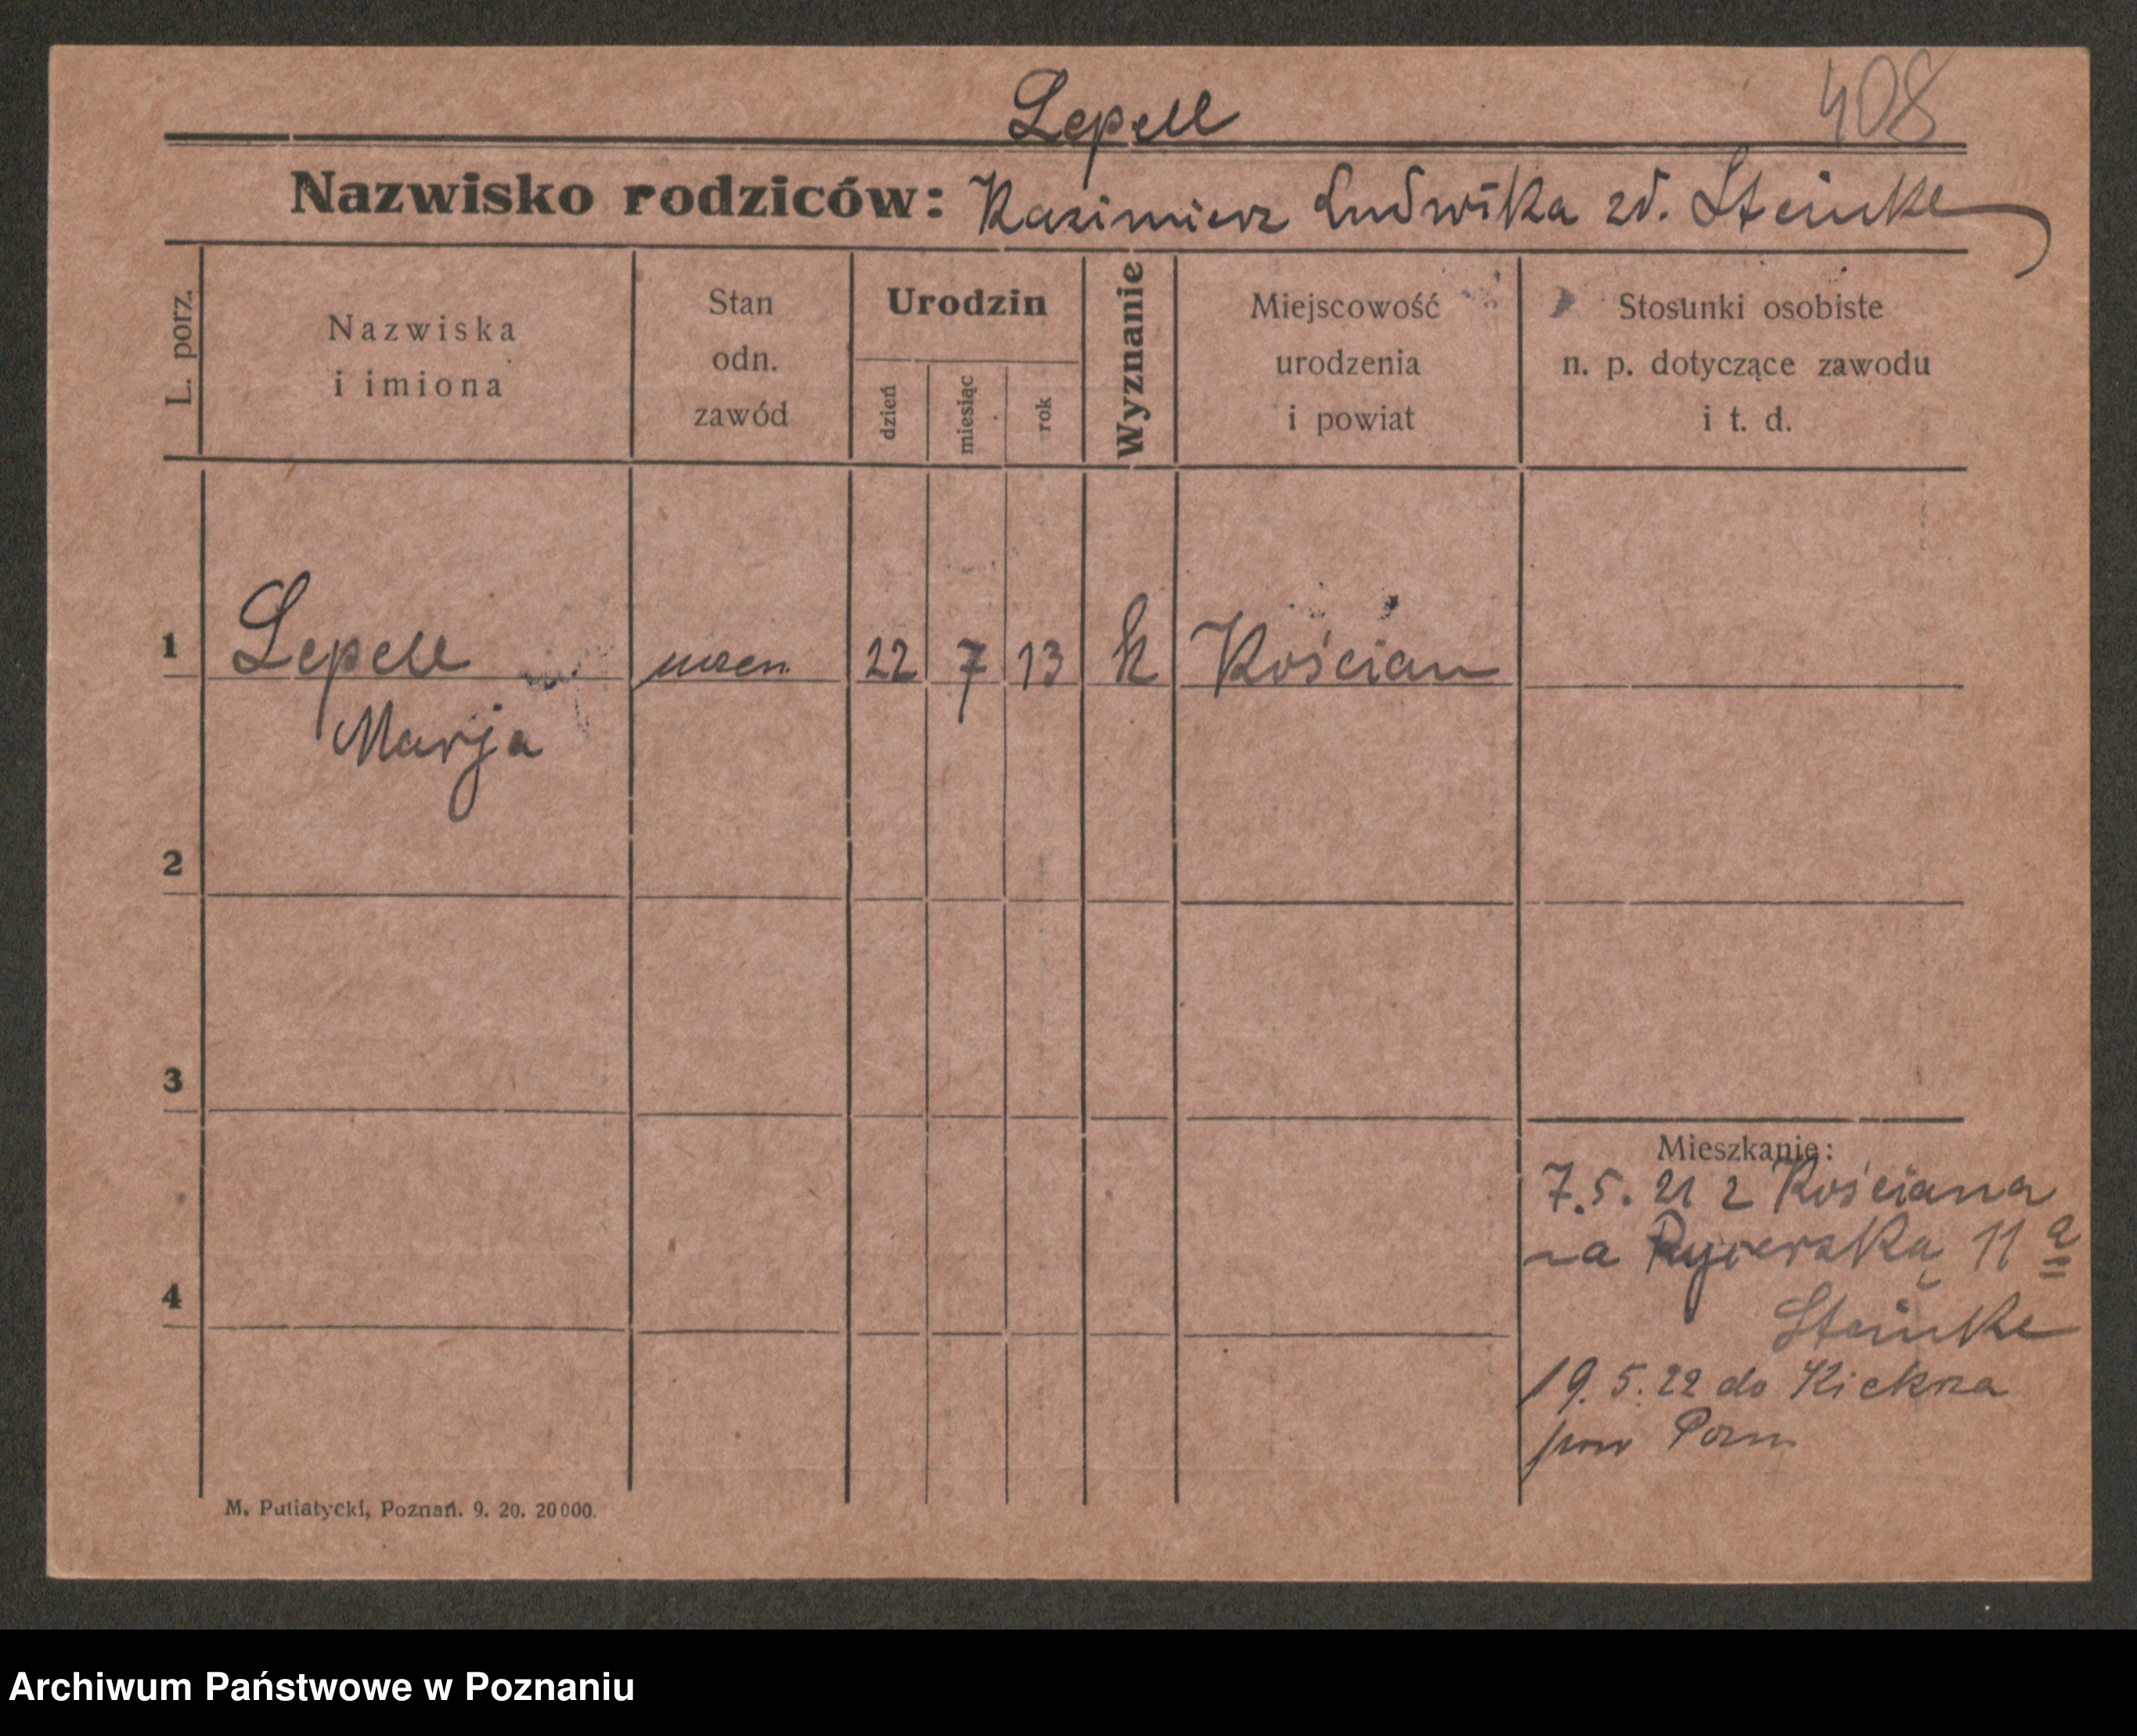 408
Lepell
Nazwisko rodziców: Kazimierz Ludwika zd. Steinke
L. porz.
Nazwiska
i imiona
Stan
odn.
zawód
Urodzin
dzień
miesiąc
rok
Wyznanie
Miejscowość
urodzenia
i powiat
Stosunki osobiste
n. p. dotyczące zawodu
i t. d.
1 Lepell 22 7 13 k Kościan
Marja
2
3
4
Mieszkanie:
7.5.21 z Kościana
na Rycerską 11 a
Steinke
19.5.22 do Kiekrza
pow Pozn
M. Putiatycki, Poznań. 9. 20. 20000.
Archiwum Państwowe w Poznaniu